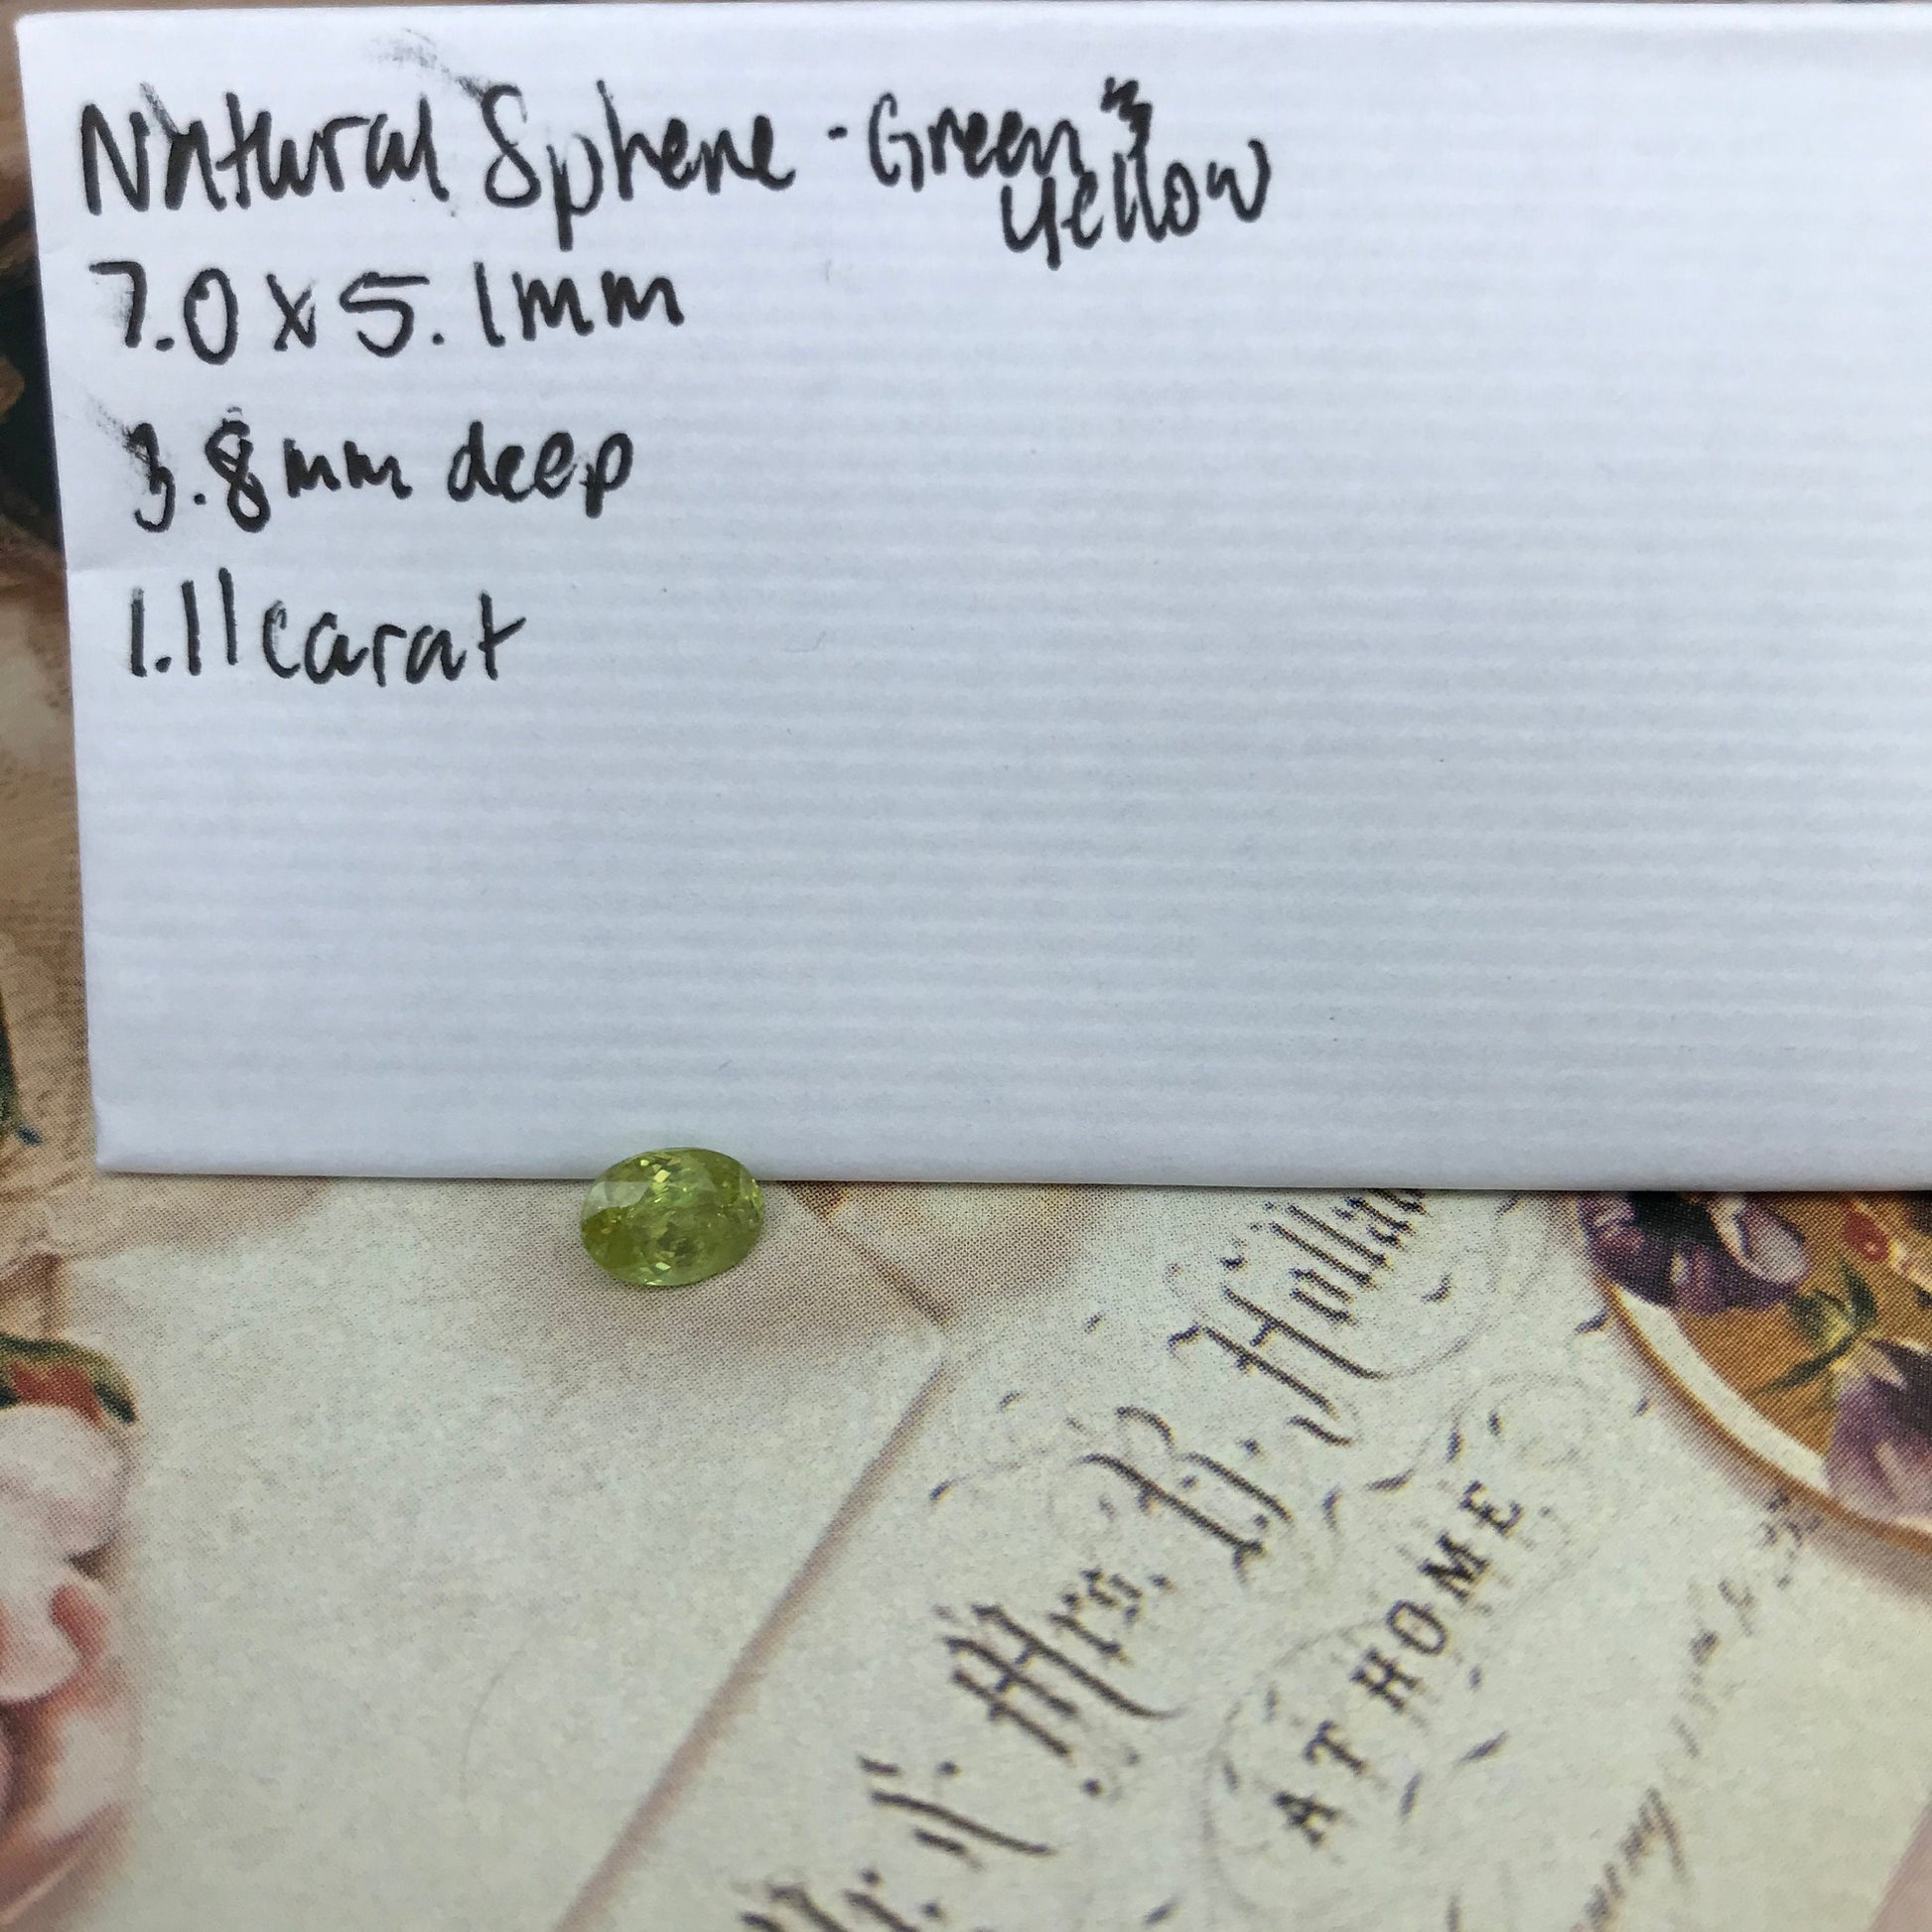 Natural Sphene - Green & Yellow
7.0 x 5.1mm
3.8mm deep
1.11 carat
Mrs. B. Holland
AT HOME